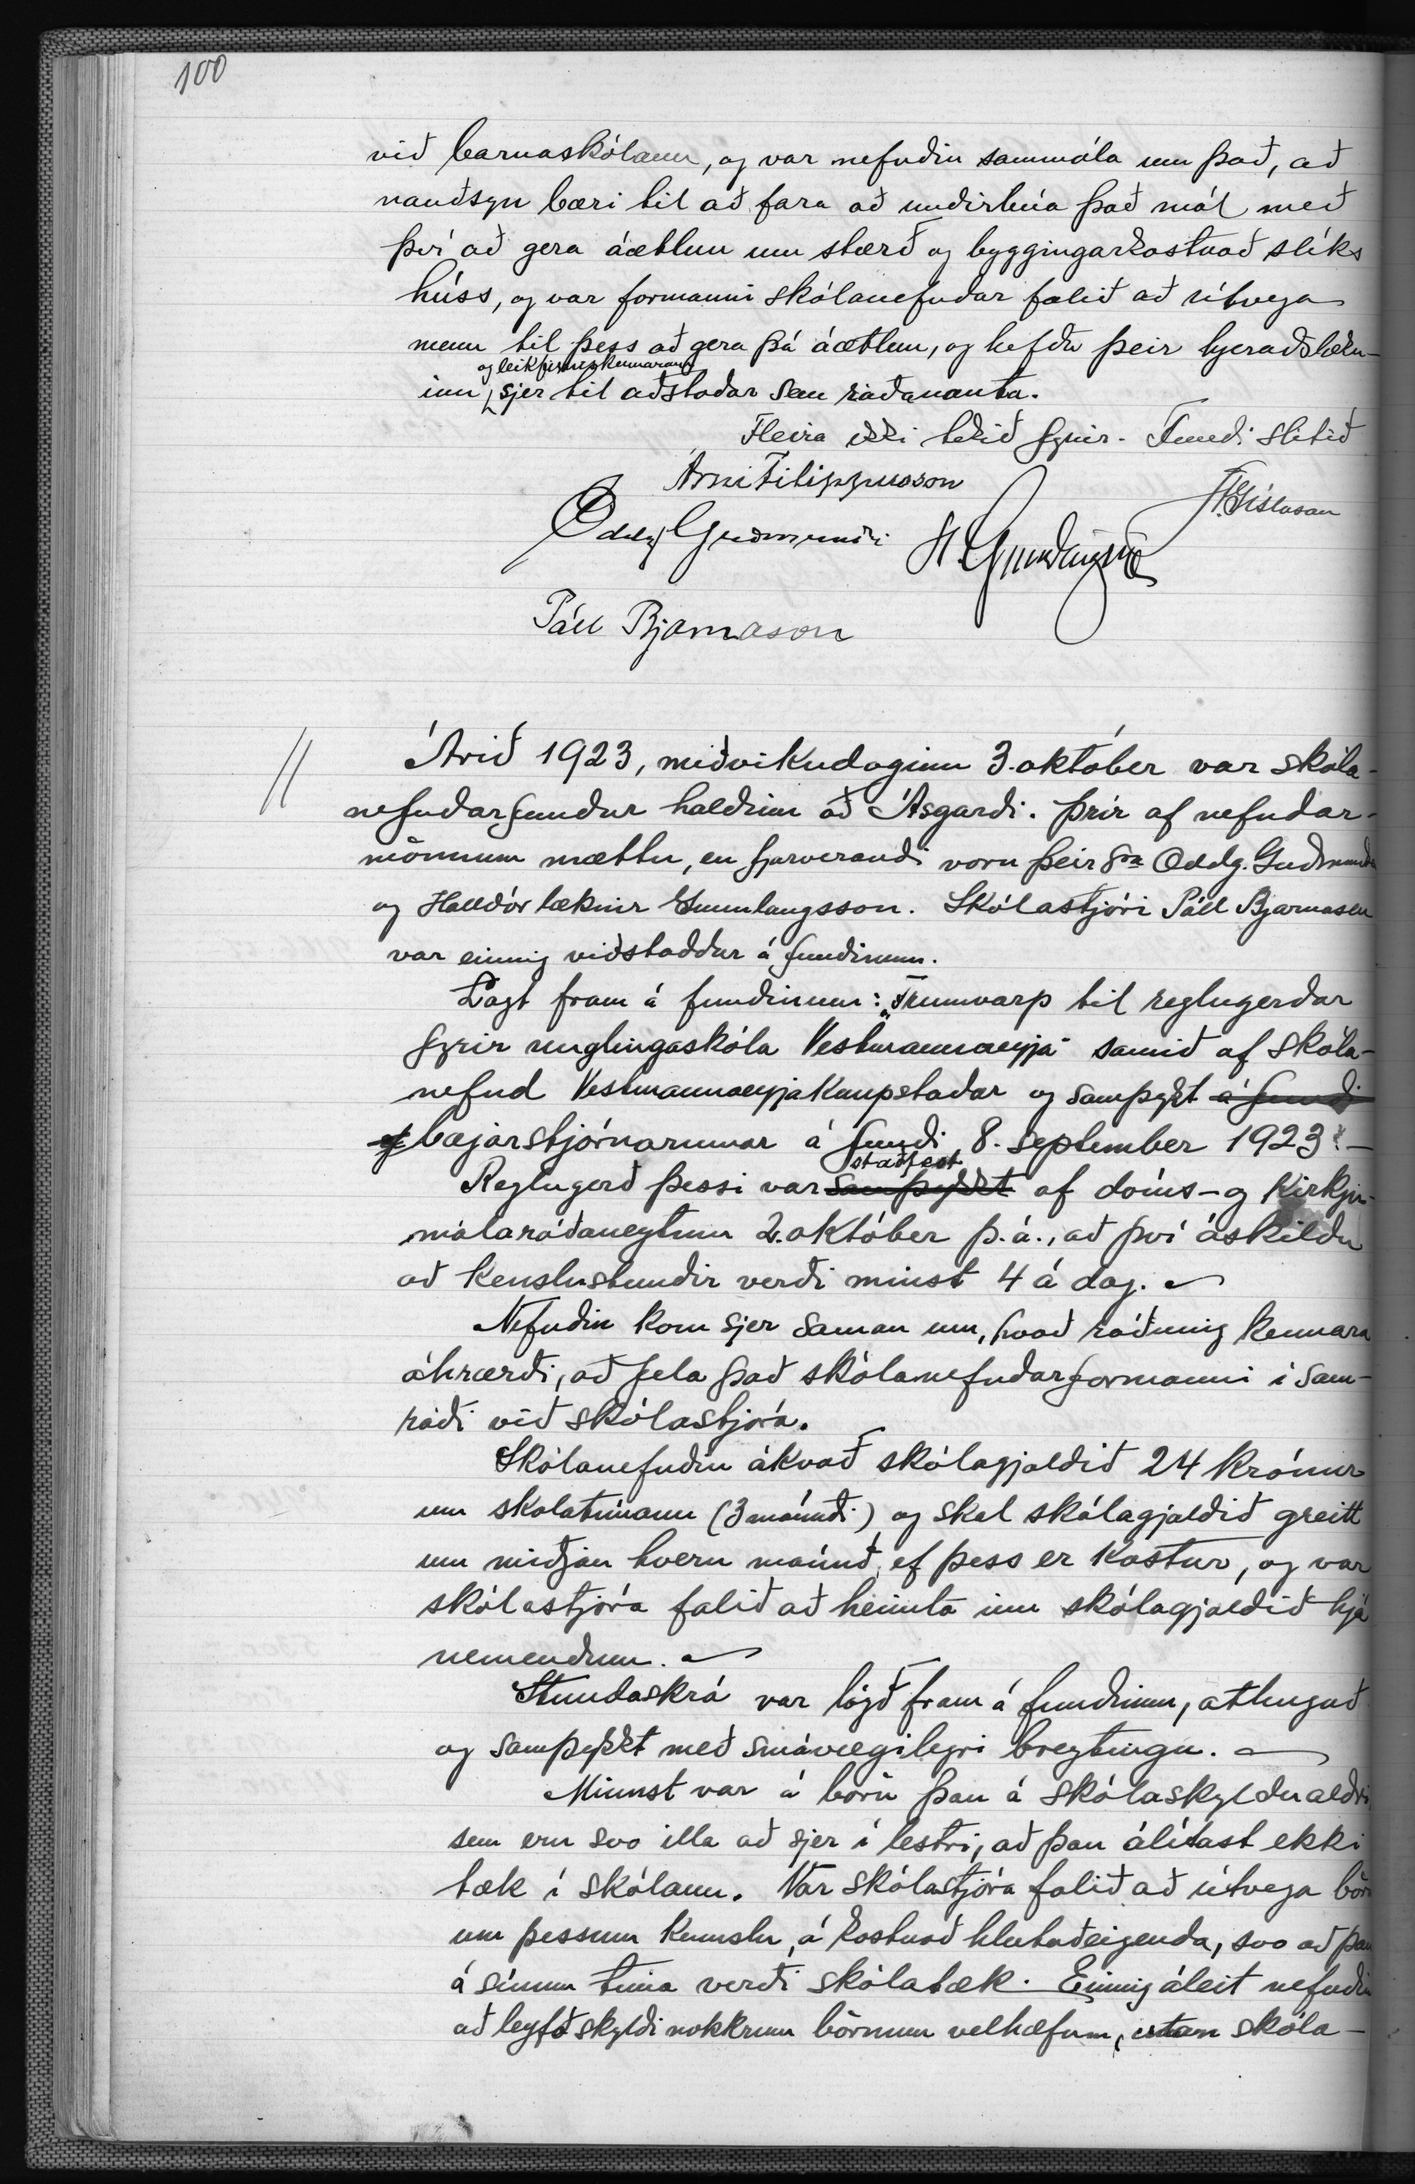 100
við barnaskólann, og var nefndin sammála um það, að
nauðsyn bæri til að fara að undirbúa það mál með
því að gera áætlun um stærð og byggingarkostnað slíks
húss, og var formanni skólanefndar falið að útvega
menn til þess að gera þá áætlun, og hefðu þeir hjeraðslækn-
og leikfimiskennarann
inn sjer til aðstoðar sem ráðanauta.
Fleira ekki tekið fyrir. Fundi slitið
Árni Filippusson
JGíslason
Oddg Guðmundss H. Gunnlaugsson
Páll Bjarnason
Árið 1923, miðvikudaginn 3. október var skóla-
nefndarfundur haldinn að Ásgarði. Þrír af nefndar-
mönnum mættu, en fjarverandi voru þeir sra Oddg. Guðmunds
og Halldór læknir Gunnlaugsson. Skólastjóri Páll Bjarnason
var einnig viðstaddur á fundinum.
Lagt fram á fundinum: „Frumvarp til reglugerðar
fyrir unglingaskóla Vestmannaeyja" samið af skóla-
nefnd Vestmannaeyjakaupstaðar og samþykt á fundi
af bæjarstjórnarinnar á fundi 8. september 1923". —
staðfest
Reglugerð þessi var samþykkt af dóms- og kirkju-
málaráðaneytinu 2. október þ.á., að því áskildu
að kenslustundir verði minst 4 á dag.
Nefndin kom sjer saman um, hvað ráðning kennara
áhrærði, að fela það skólanefndarformanni í sam-
ráði við skólastjóra.
Skólanefndin ákvað skólagjaldið 24 krónur
um skólatímann (3 mánuði) og skal skólagjaldið greitt
um miðjan hvern mánuð, ef þess er kostur, og var
skólastjóra falið að heimta inn skólagjaldið hjá
nemendum.
Stundaskrá var lögð fram á fundinum, athuguð
og samþykkt með smávægilegri breytingu.
Minnst var á börn þau á skólaskyldualdri
sem eru svo illa að sjer í lestri, að þau álítast ekki
tæk í skólann. Var skólastjóra falið að útvega börn
um þessum kennslu, á kostnað hlutaðeigenda, svo að þau
á sínum tíma verði skólatæk. Einnig áleit nefndin
að leyfa skyldi nokkrum börnum velhæfum, utan skóla-